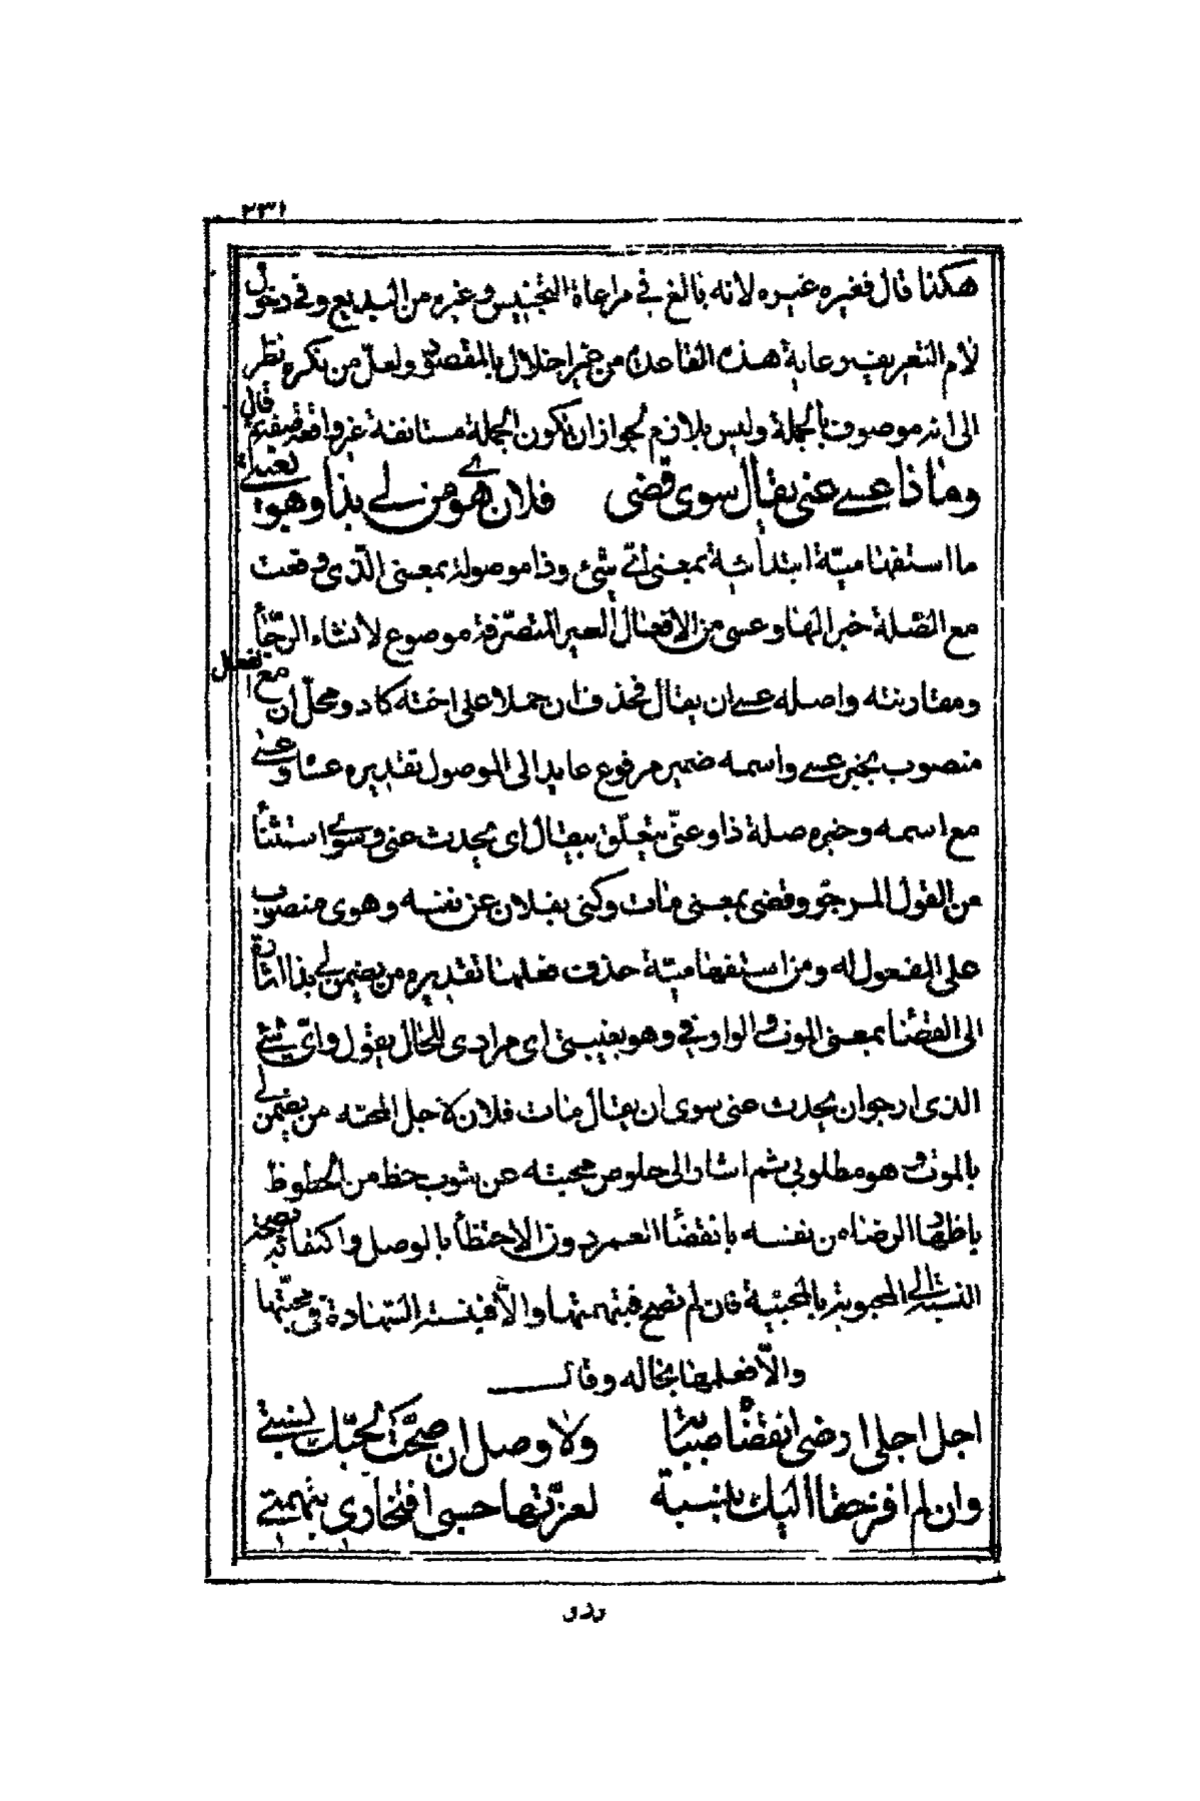 ٢٣١
هكذا قال فغيره غيره لانه بالغ في مراعاة التجنيس وغيره من البديع وفي دخول
لام التعريف رعاية هذه القاعدة من غير اخلال بالمقصود ولعلّ من نكره نظر
الى انه موصوف بالجملة وليس بلازم لجواز ان يكون الجملة مستانفة غير واقعة صفة قال
وماذا عسى عنى يقال سوى قضى فلان هوى من لي بذا وهو بغيتي
ما استفهاميّة ابتدائية بمعنى أيّ شئ وذا موصولة بمعنى الّذى وقعت
مع الصّلة خبرا لها وعسى من الافعال الغير المتصرّفة موضوع لانشاء الرجأ
ومقاربته واصله عسى ان يقال فحذف ان حملا على اخته كاد ومحلّ ان مع الفعل
منصوب بخبر عسى واسمه ضمير مرفوع عايد الى الموصول تقديره عساه وعسى
مع اسمه وخبره صلة ذا وعنّى يتعلّق بيقال اى يحدث عنى وسوى استثنأ
من القول المرجوّ وقضى بمعنى مات وكنى بفلان عن نفسه وهوى منصوب
على المفعول له ومن استفهاميّة حذف فعلها تقديره من يضمن لي بذا اشارة
الى القضأ بمعنى الموت والواو في وهو بغيتى اى مرادى للحال يقول وايّ شئ
الذى ارجو ان يحدث عنى سوى ان يقال مات فلان لاجل المحبّه من يضمن لي
بالموت وهو مطلوبي ثم اشار الى خلوص محبته عن شوب حظ من الحظوظ
باظهار الرضا من نفسه بانقضأ العمر دون الاحتظأ بالوصل واكتفائه بصحة
النسبة الى المحبوبة بالمحبّية فان لم تصح فبتهمتها والّا فبنسبة الشهادة في محبّتها
والّا فعلمها بحاله وقال
اجل اجلى ارضى انقضاه صبابة ولا وصل ان صحّت لحبّك نسبتي
وان لم افز حقا اليك بنسبة لعزّتها حسبى افتخارى بتهمتي